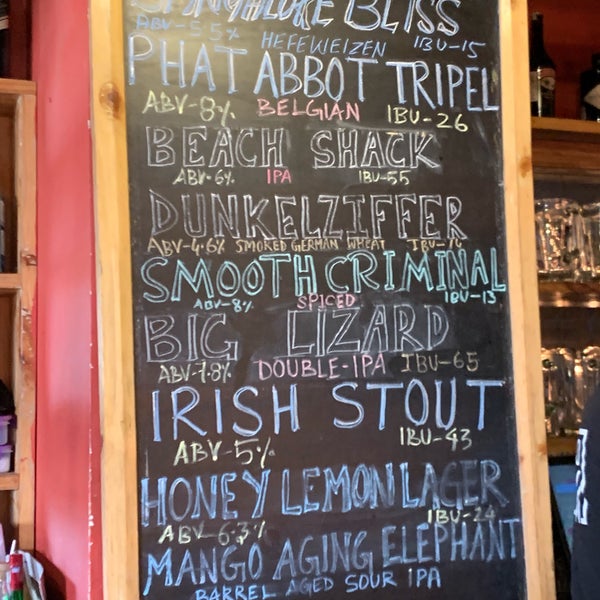 BLISS
ABV-5.5% HEFEWEIZEN IBU-15
PHAT ABBOT TRIPEL
ABV-8% BELGIAN IBU-26
BEACH SHACK
ABV-6% IPA IBU-55
DUNKELZIFFER
ABV-4.6% SMOKED GERMAN WHEAT IBU-14
SMOOTH CRIMINAL
ABV-8% SPICED IBU-13
BIG LIZARD
ABV-7.8% DOUBLE-IPA IBU-65
IRISH STOUT
ABV-5% IBU-43
HONEY LEMON LAGER
ABV-6.3% IBU-24
MANGO AGING ELEPHANT
BARREL AGED SOUR IPA